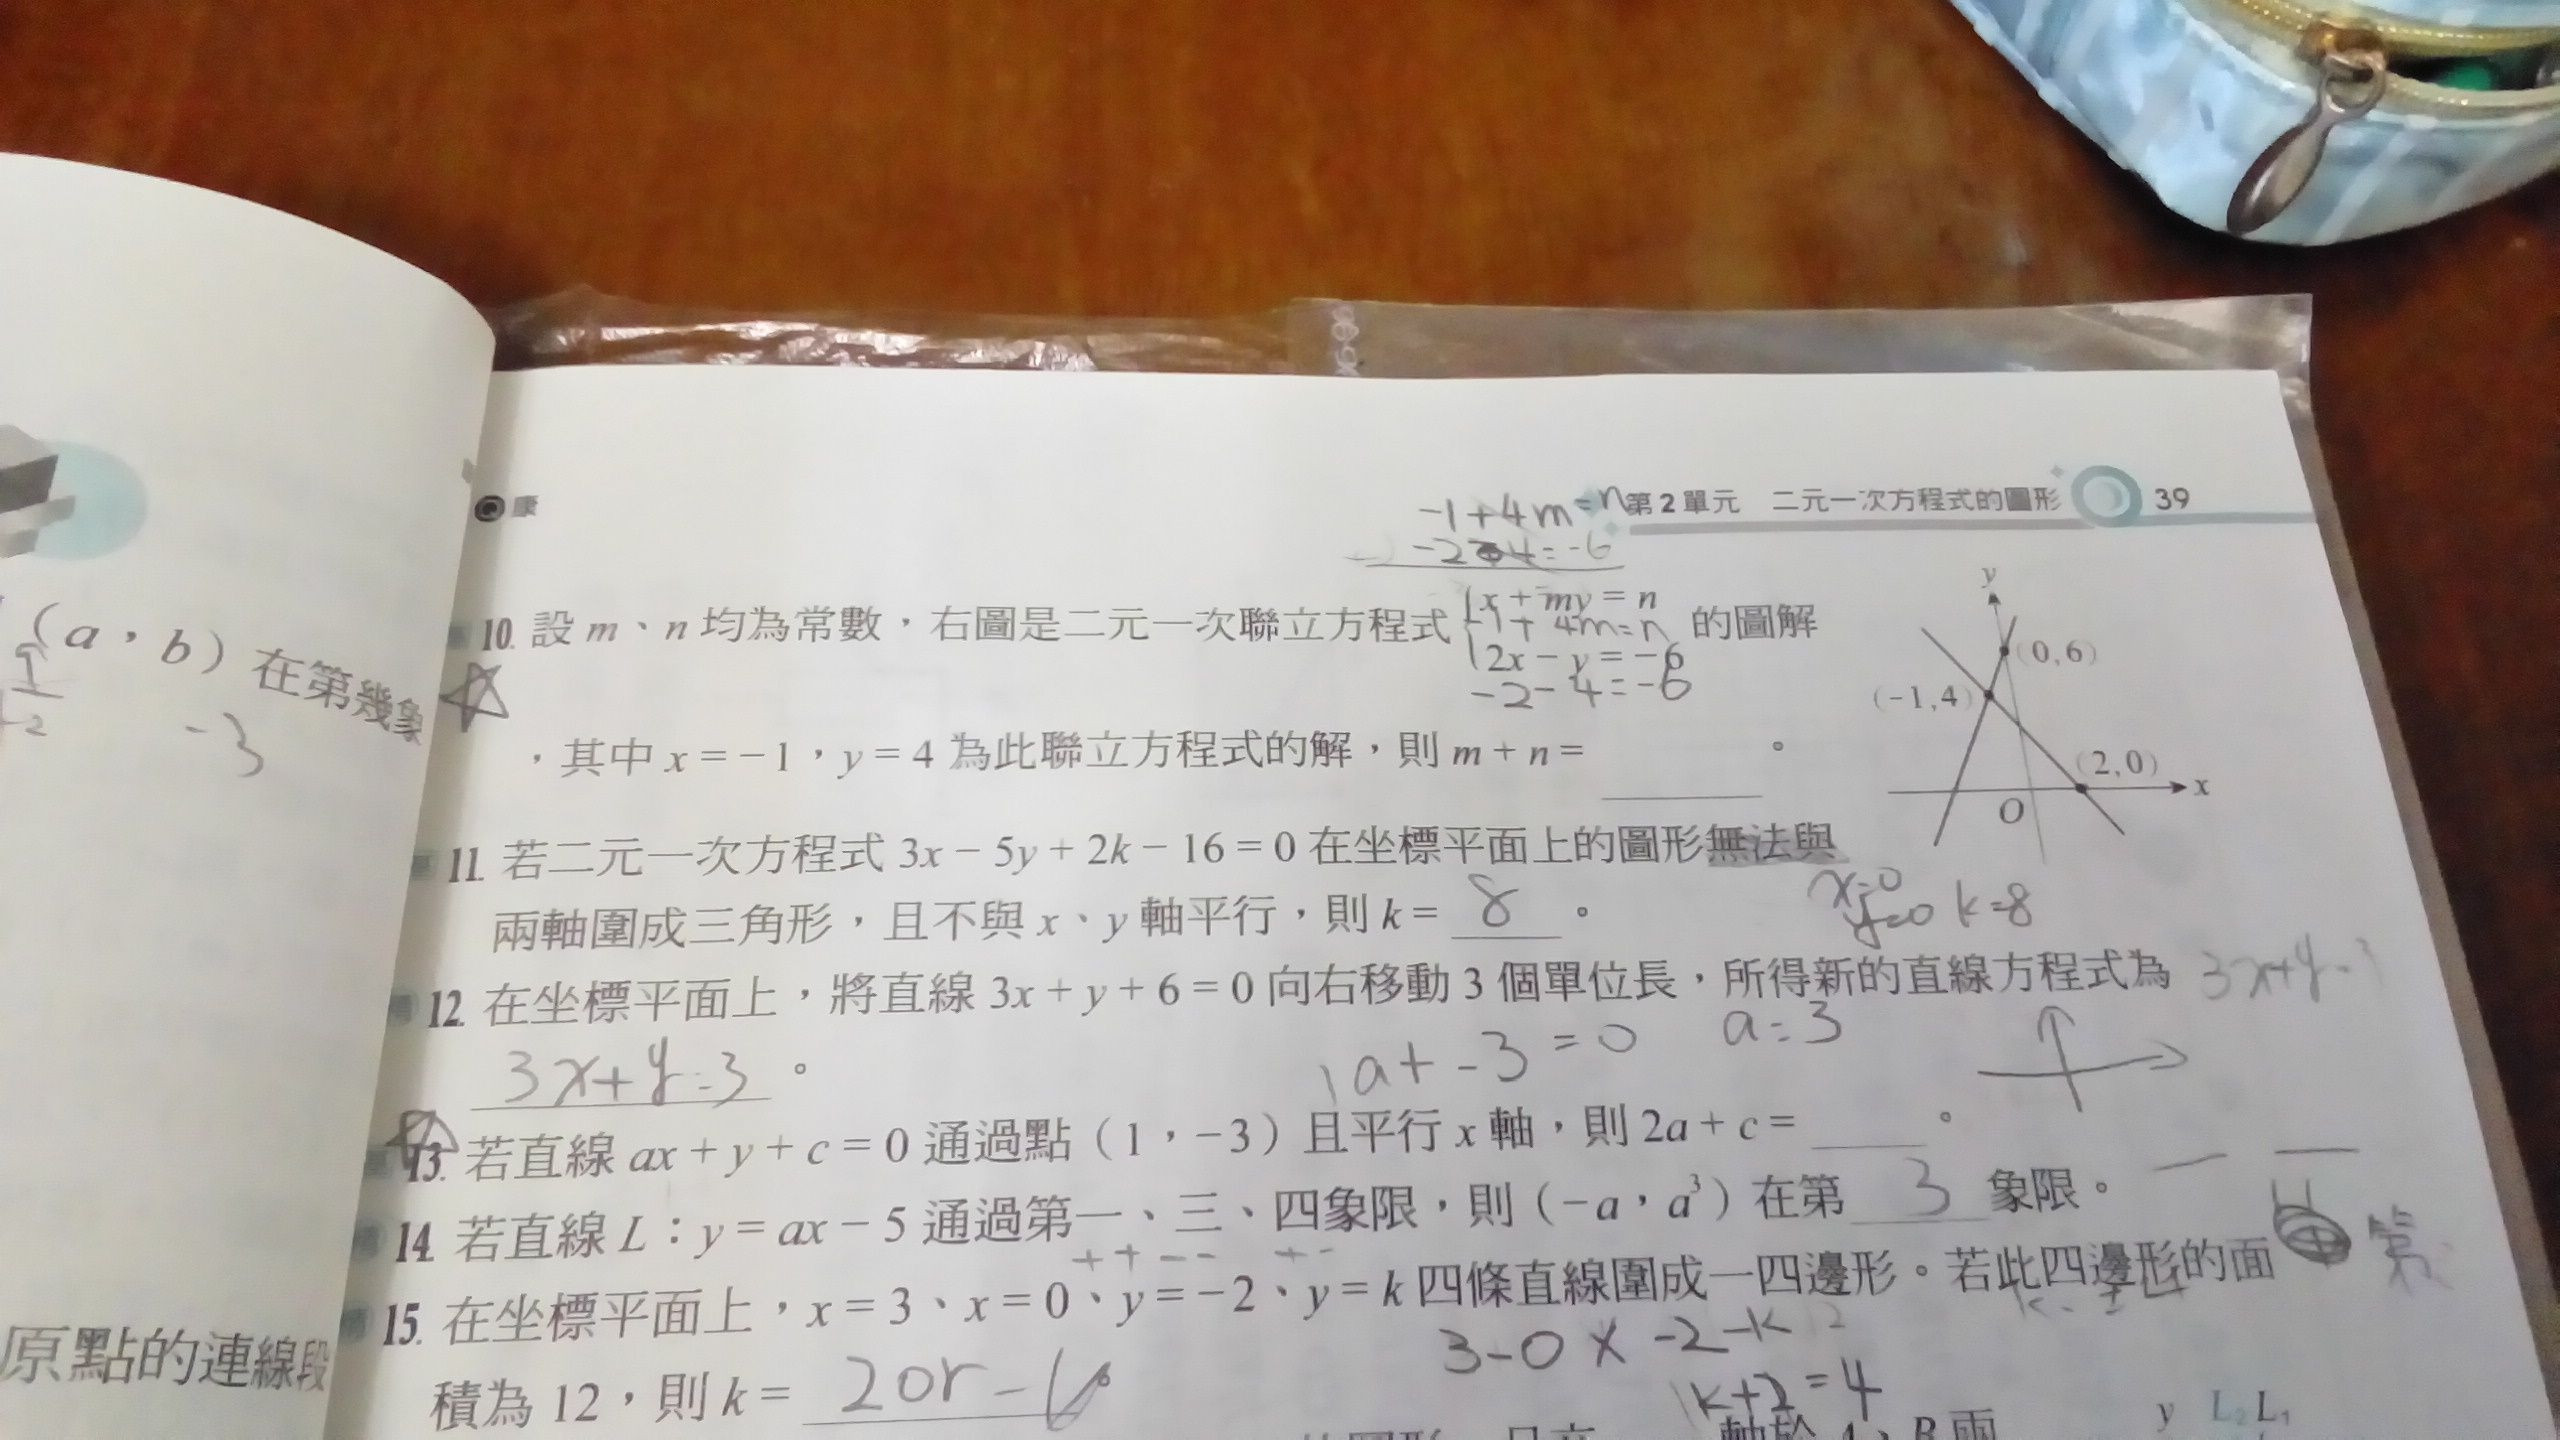 康
第2單元 二元一次方程式的圖形 39
-1+4m=n
(a,b)在第幾象
-3
10. 設m、n均為常數，右圖是二元一次聯立方程式 { x+my=n 的圖解
-1+4m=n
2x-y=-6
-2-4=-6
，其中x=-1，y=4為此聯立方程式的解，則m+n= 。
y
(0,6)
(-1,4)
(2,0)
x
O
11. 若二元一次方程式3x-5y+2k-16=0在坐標平面上的圖形無法與
兩軸圍成三角形，且不與x、y軸平行，則k= 8 。
x=0
y=0 k=8
12. 在坐標平面上，將直線3x+y+6=0向右移動3個單位長，所得新的直線方程式為
3x+y=3 。
1a+-3=0 a=3
13. 若直線ax+y+c=0通過點(1，-3)且平行x軸，則2a+c= 。
14. 若直線L：y=ax-5通過第一、三、四象限，則(-a，a³)在第 3 象限。
++ -- +-
15. 在坐標平面上，x=3、x=0、y=-2、y=k四條直線圍成一四邊形。若此四邊形的面
3-0×-2-k
積為12，則k= 2or-6。
k+2=4
原點的連線段
y L₂ L₁